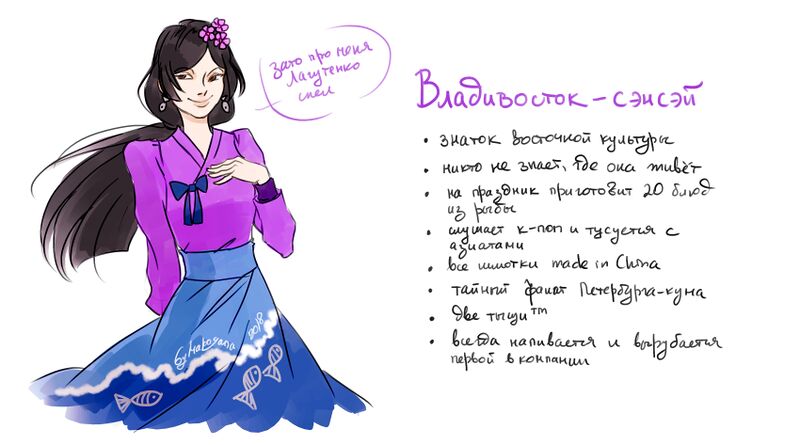 зато про меня
Лагутенко
спел
Владивосток-сэнсэй
• знаток восточной культуры
• никто не знает, где она живёт
• на праздник приготовит 20 блюд
из рыбы
• слушает к-поп и тусуется с
азиатами
• все шмотки made in China
• тайный фанат Петербурга-куна
• две тыщи™
• всегда напивается и вырубается
первой в компании
by Nakosana
2018